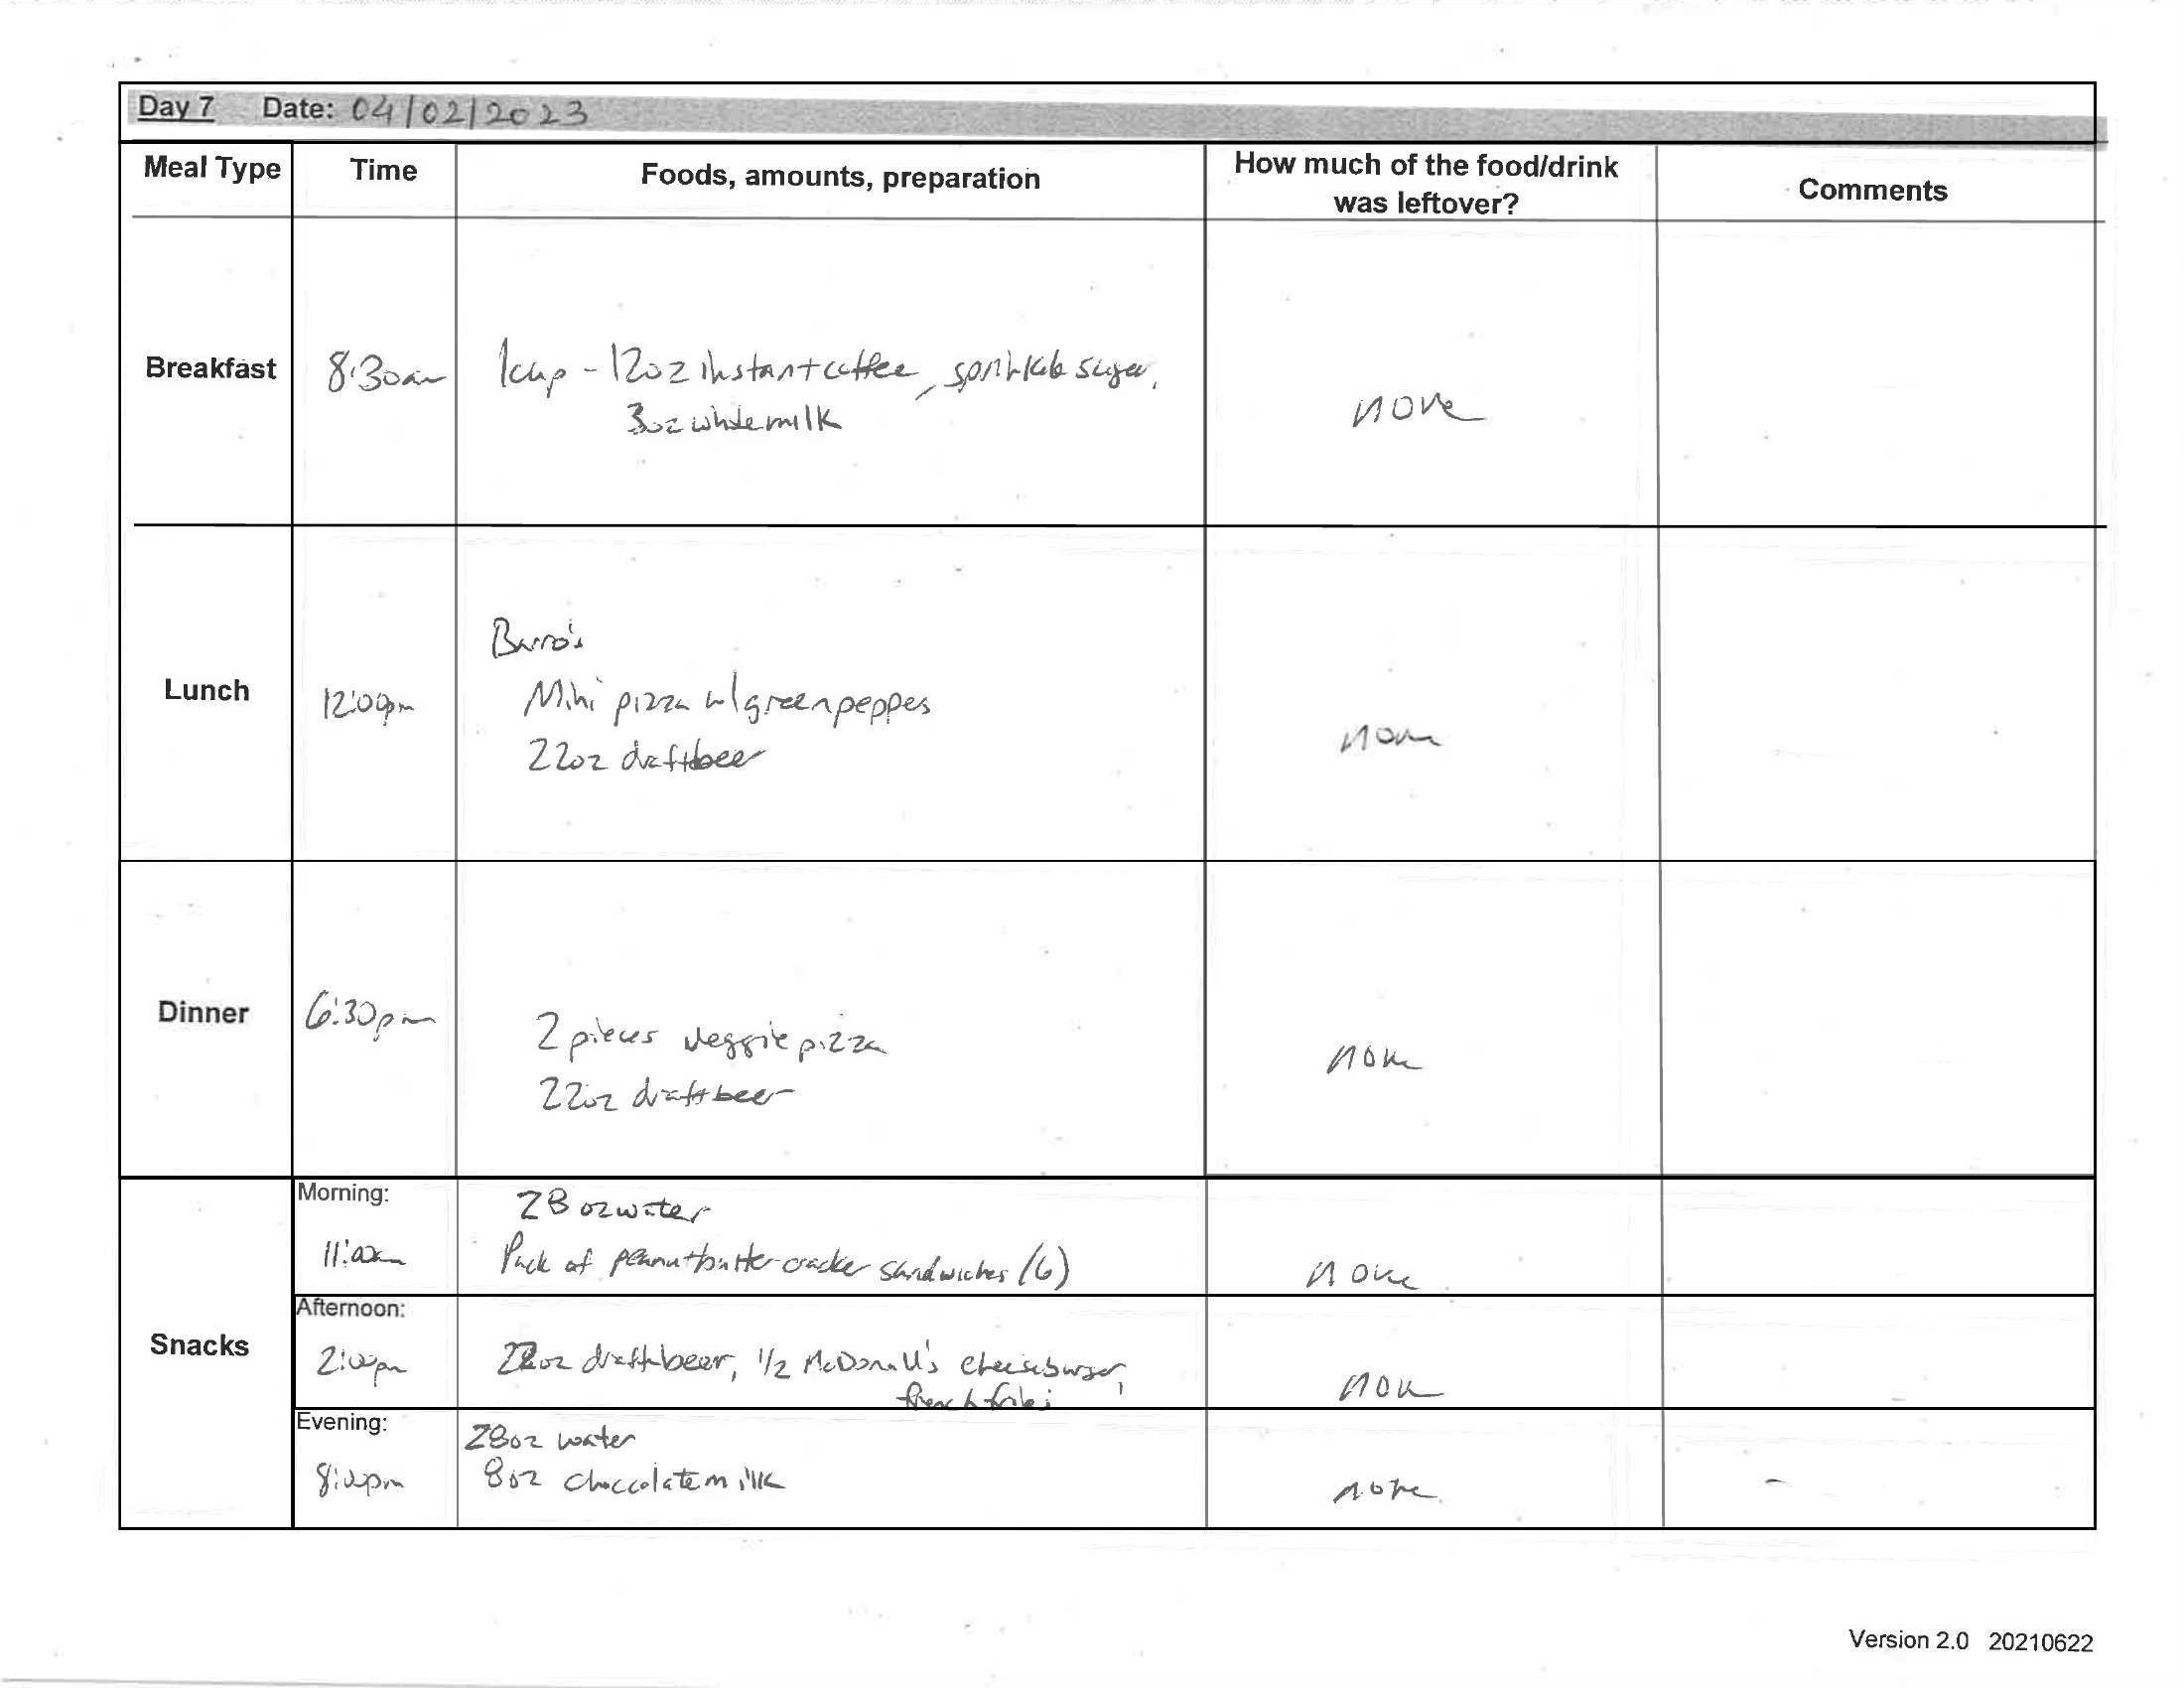 Day 7 Date: 04/02/2023
Meal Type Time Foods, amounts, preparation How much of the food/drink was leftover? Comments
Breakfast 8:30am 1cup - 12oz instant coffee, sprinkle sugar,
3oz white milk
none
Lunch 12:00pm
Burro's
Mini pizza w/ green peppes
22oz draft beer
none
Dinner 6:30pm
2 pieces veggie pizza
22oz draft beer
none
Snacks
Morning: 28 oz water
11:00am Pack of peanutbutter cracker sandwiches (6) none
Afternoon:
2:00pm 22oz draft beer, 1/2 McDonald's cheeseburger, none
french fries
Evening: 28oz water
8:00pm 8oz choccolate milk none
Version 2.0 20210622